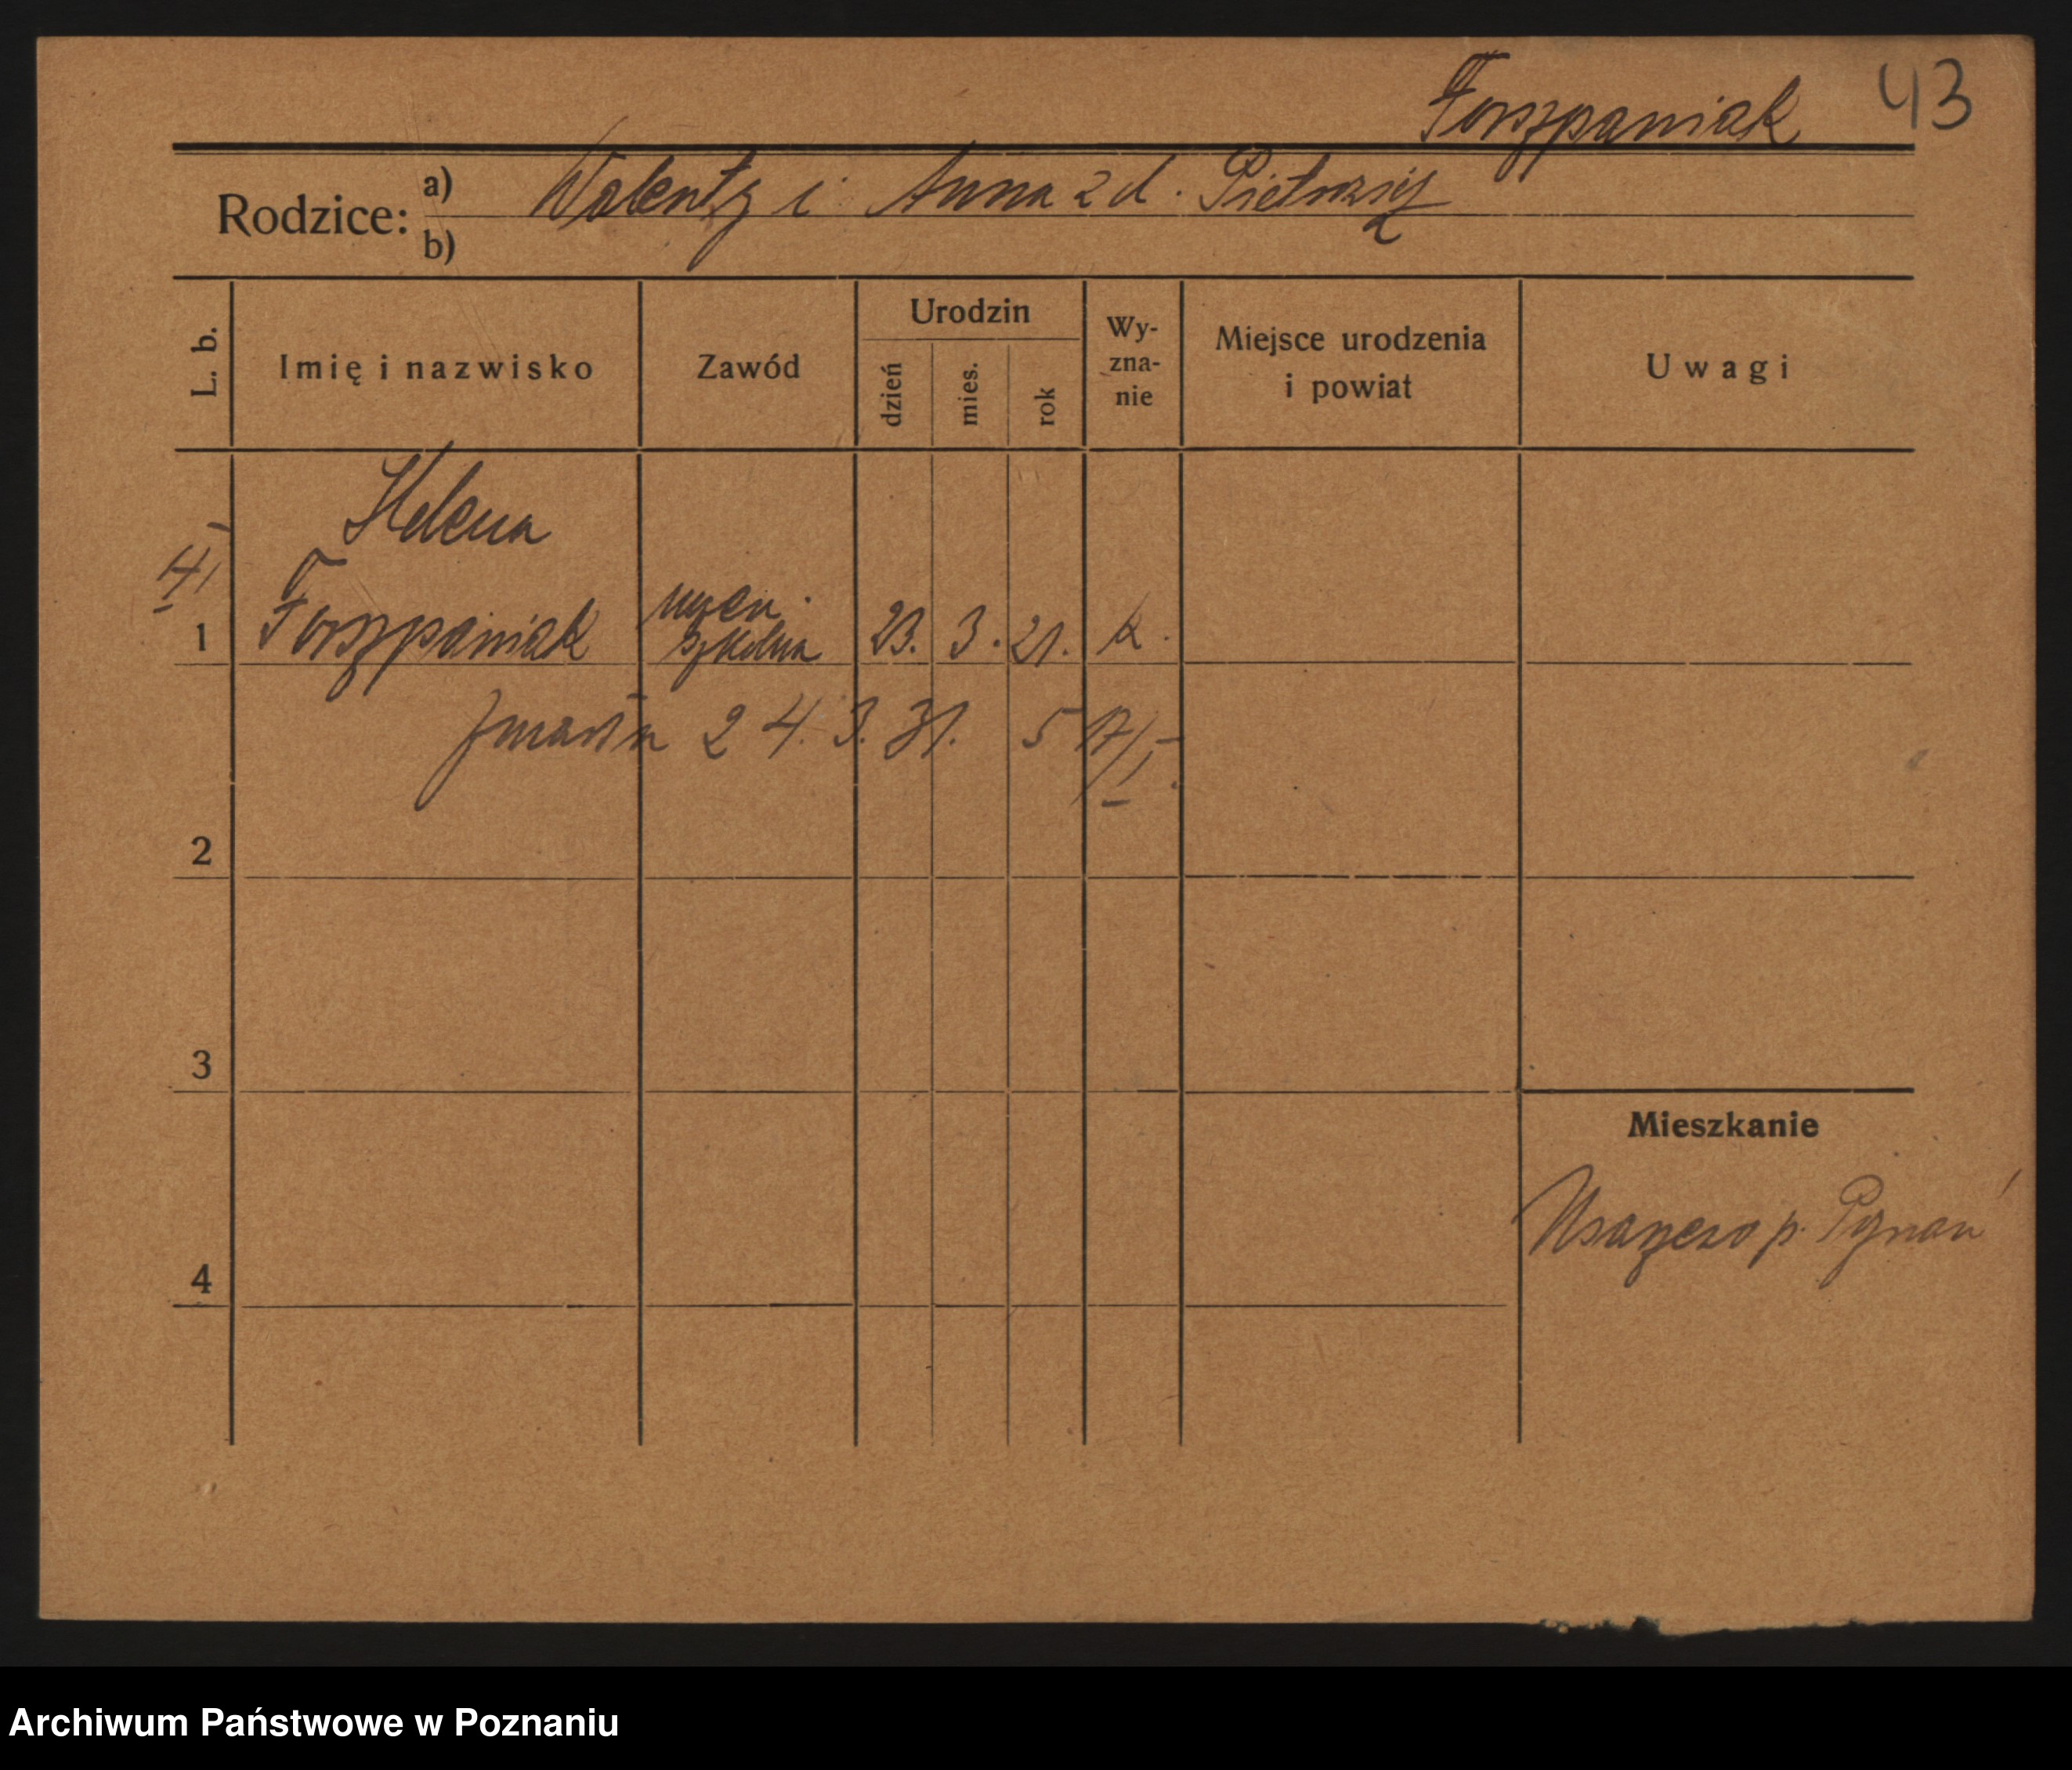 Forszpaniak 43
Rodzice: a) Walenty i Anna z d.
b)
L. b. Imię i nazwisko Zawód Urodzin dzień mies. rok Wy-zna-nie Miejsce urodzenia i powiat Uwagi
Helena
1 Forszpaniak uczen. szkolna 23. 3. 21. k.
zmarła 24. 3. 31.
2
3
Mieszkanie
p. Poznań
4
Archiwum Państwowe w Poznaniu